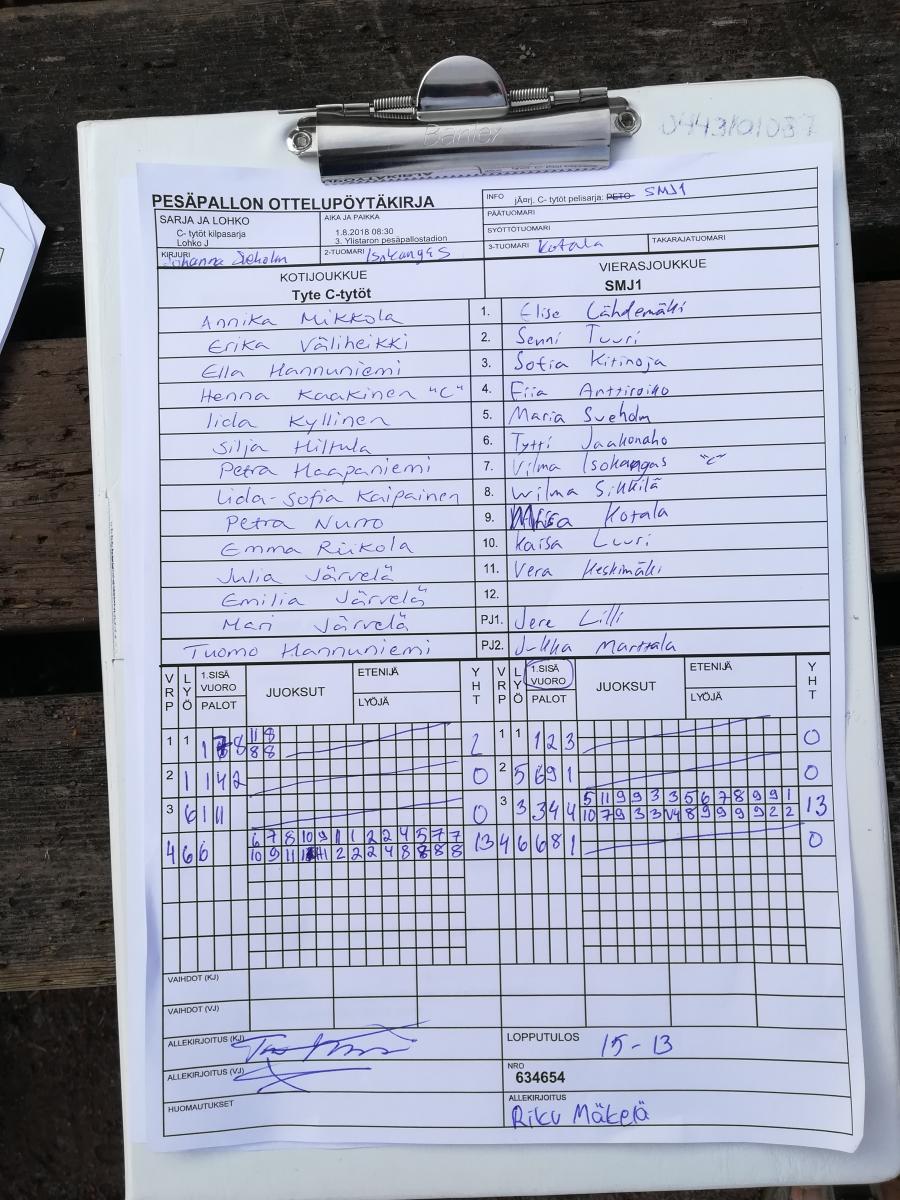 Banter
0443101087
PESÄPALLON OTTELUPÖYTÄKIRJA
INFO jÃ¤rj. C- tytöt pelisarja: PETO SMJ1
PÄÄTUOMARI
SYÖTTÖTUOMARI
SARJA JA LOHKO
C- tytöt kilpasarja
Lohko J
AIKA JA PAIKKA
1.8.2018 08:30
3. Ylistaron pesäpallostadion
KIRJURI Johanna
2-TUOMARI Isokangas
3-TUOMARI Kotala
TAKARAJATUOMARI
KOTIJOUKKUE VIERASJOUKKUE
Tyte C-tytöt SMJ1
Annika Mikkola 1. Elise Lähdemäki
Erika Väliheikki 2. Senni Tuuri
Ella Hannuniemi 3. Sofia Kitinoja
Henna Kaakinen "C" 4. Fiia Anttiroiko
Iida Kyllinen 5. Maria Sveholm
Silja Hiltula 6. Tytti Jaakonaho
Petra Haapaniemi 7. Vilma Isokangas "C"
Iida-Sofia Kaipainen 8. Wilma Sikkilä
Petra Nurro 9. Kotala
Emma Riikola 10. Kaisa Luuri
Julia Järvelä 11. Vera Keskimäki
Emilia Järvelä 12.
Mari Järvelä PJ1. Jere Lilli
Tuomo Hannuniemi PJ2. Jukka Marttala
VRP LYÖ 1.SISÄ VUORO PALOT JUOKSUT ETENIJÄ LYÖJÄ YHT VRP LYÖ 1.SISÄ VUORO PALOT JUOKSUT ETENIJÄ LYÖJÄ YHT
1 1 1 8 11 8 2 1 1 1 2 3 0
8 8
2 1 1 4 2 0 2 5 6 9 1 0
3 6 1 11 0 3 3 3 4 4 5 11 9 9 3 3 5 6 7 8 9 9 1 13
10 7 9 3 3 V4 8 9 9 9 9 2 2
4 6 6 6 7 8 10 9 1 1 2 2 4 5 7 7 13 4 6 6 8 1 0
10 9 11 2 2 2 4 8 8 8 8
VAIHDOT (KJ)
VAIHDOT (VJ)
ALLEKIRJOITUS (KJ)
LOPPUTULOS 15-13
ALLEKIRJOITUS (VJ)
NRO
634654
HUOMAUTUKSET
ALLEKIRJOITUS
Riku Mäkelä